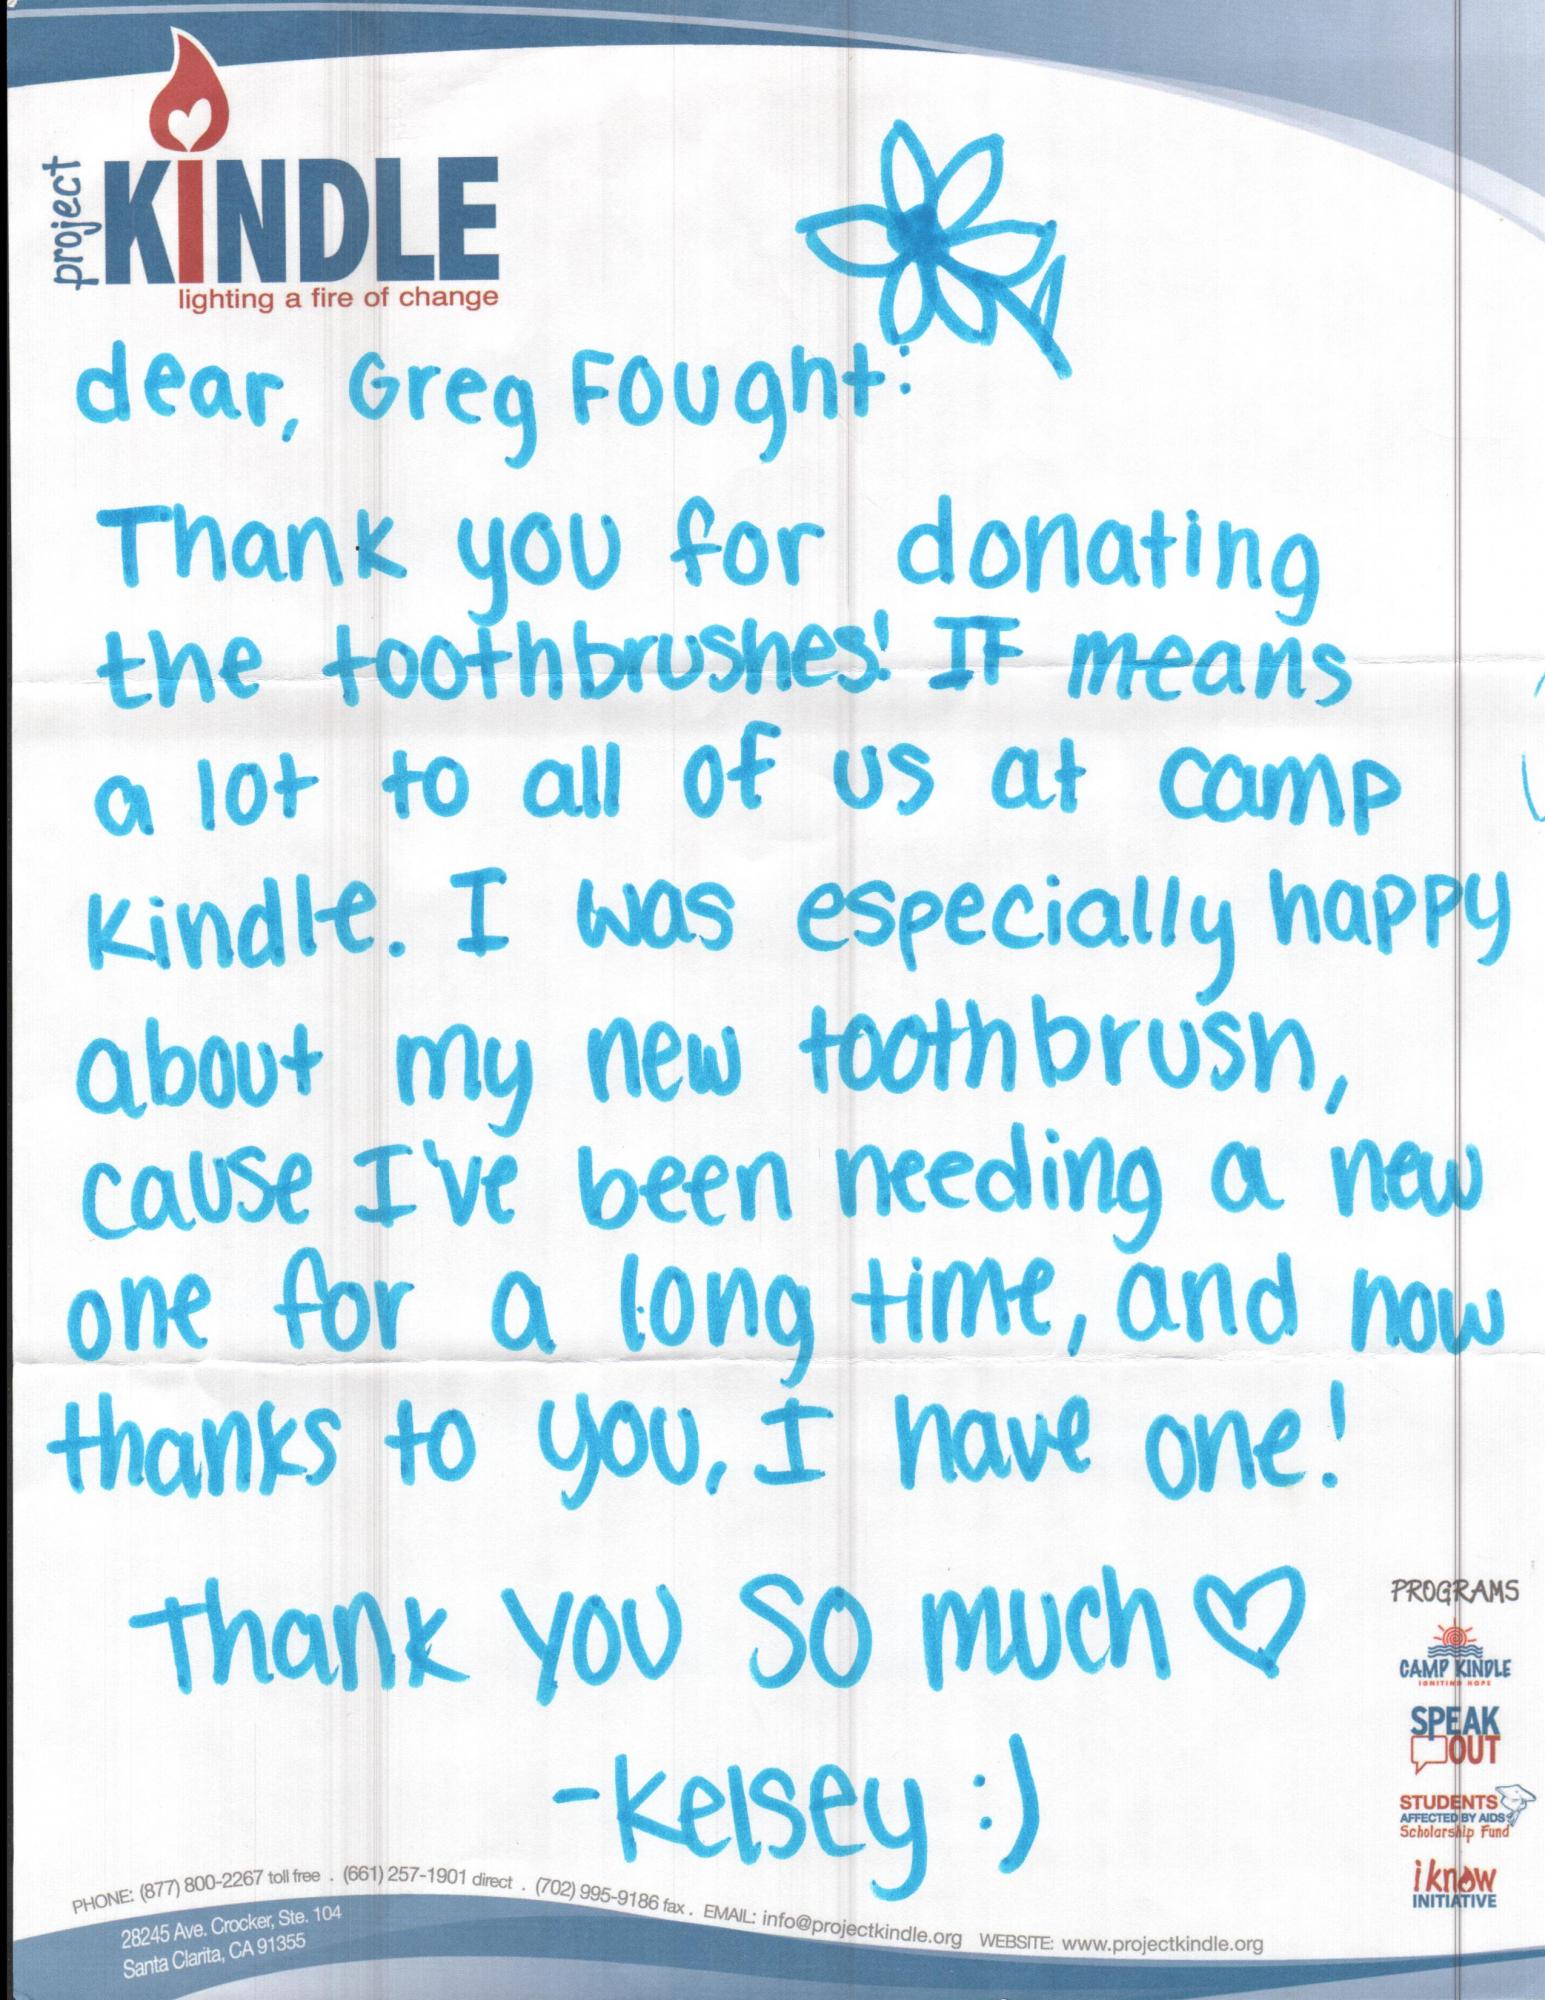 project
KINDLE
lighting a fire of change
dear, Greg Fought:
Thank you for donating
the toothbrushes! IT means
a lot to all of us at camp
Kindle. I was especially happy
about my new toothbrush,
cause I've been needing a new
one for a long time, and now
thanks to you, I have one!
Thank you so much ♡
-Kelsey :)
PROGRAMS
CAMP KINDLE
IGNITING HOPE
SPEAK
OUT
STUDENTS
AFFECTED BY AIDS
Scholarship Fund
i know
INITIATIVE
PHONE: (877) 800-2267 toll free . (661) 257-1901 direct . (702) 995-9186 fax . EMAIL: info@projectkindle.org WEBSITE: www.projectkindle.org
28245 Ave. Crocker, Ste. 104
Santa Clarita, CA 91355